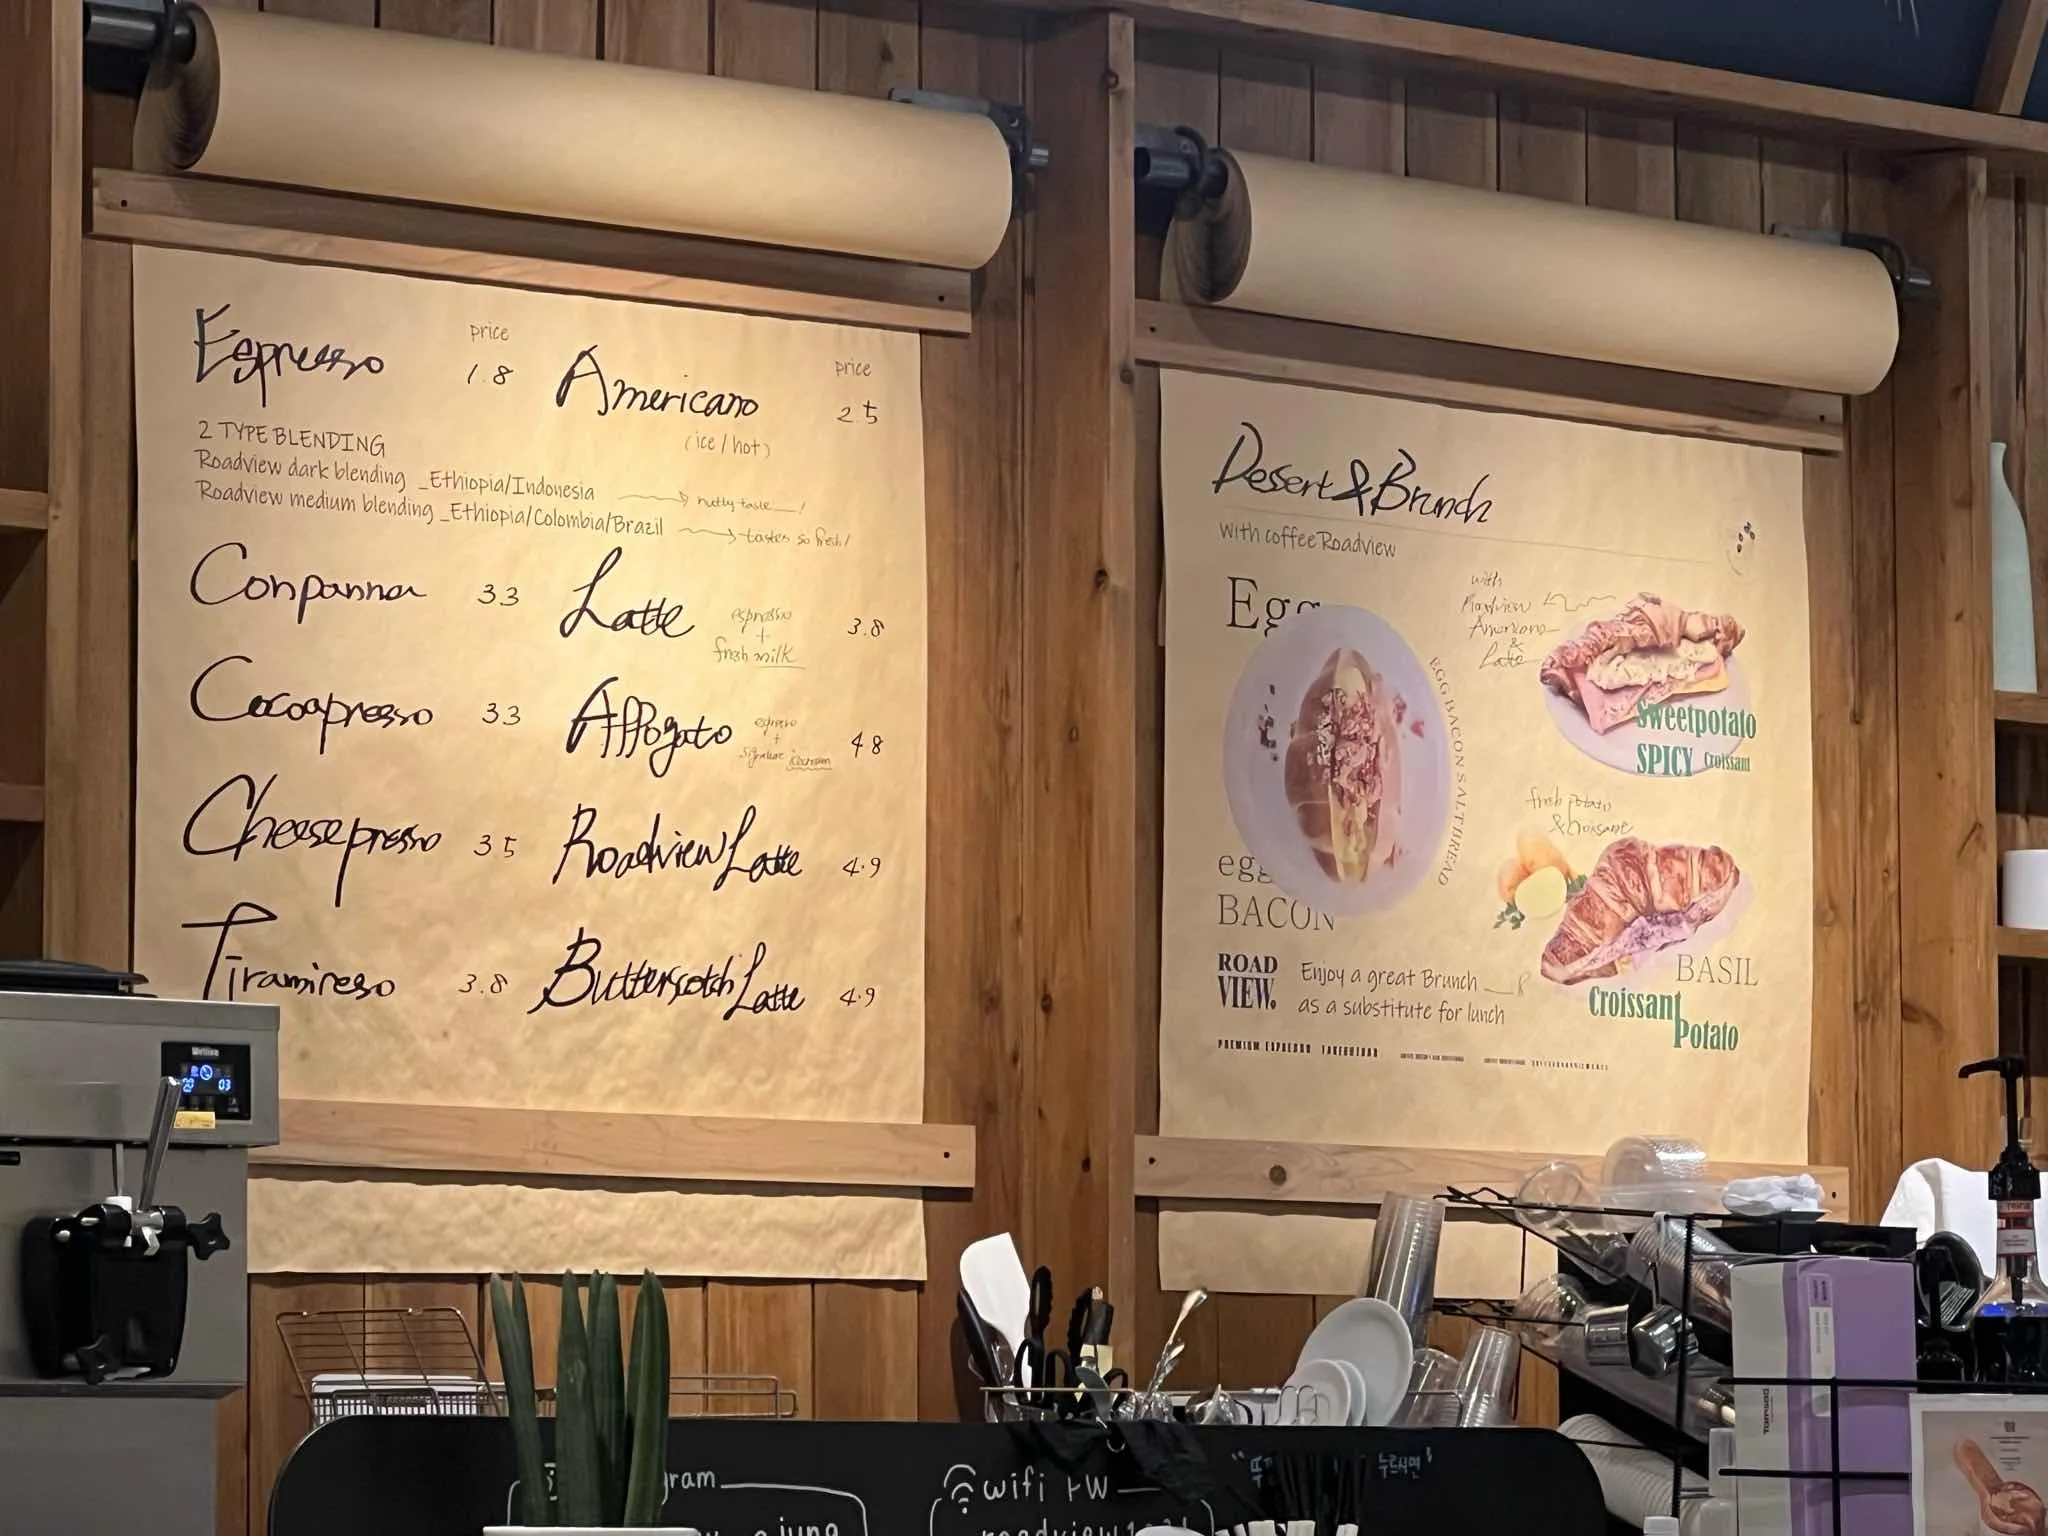 Espresso price 1.8
Americano price 2.5
(ice / hot)
2 TYPE BLENDING
Roadview dark blending _Ethiopia/Indonesia nutty taste __!
Roadview medium blending _Ethiopia/Colombia/Brazil tastes so fresh!
Conpanna 3.3
Latte espresso + fresh milk 3.8
Cocoapresso 3.3
Affogato espresso + signature icecream 4.8
Cheesepresso 3.5
Roadview Latte 4.9
Tiramipresso 3.8
Butterscotch Latte 4.9
Dessert & Brunch
With coffee Roadview
Egg
with
Roadview
Americano
&
Latte
EGG BACON SALT BREAD
Sweetpotato
SPICY Croissant
fresh potato
& Croisant
egg
BACON
BASIL
Croissant
Potato
ROAD
VIEW.
Enjoy a great Brunch
as a substitute for lunch
PREMIUM ESPRESSO TAKEOUTBAR
20 03
gram
wifi PW
jung
누르시면"